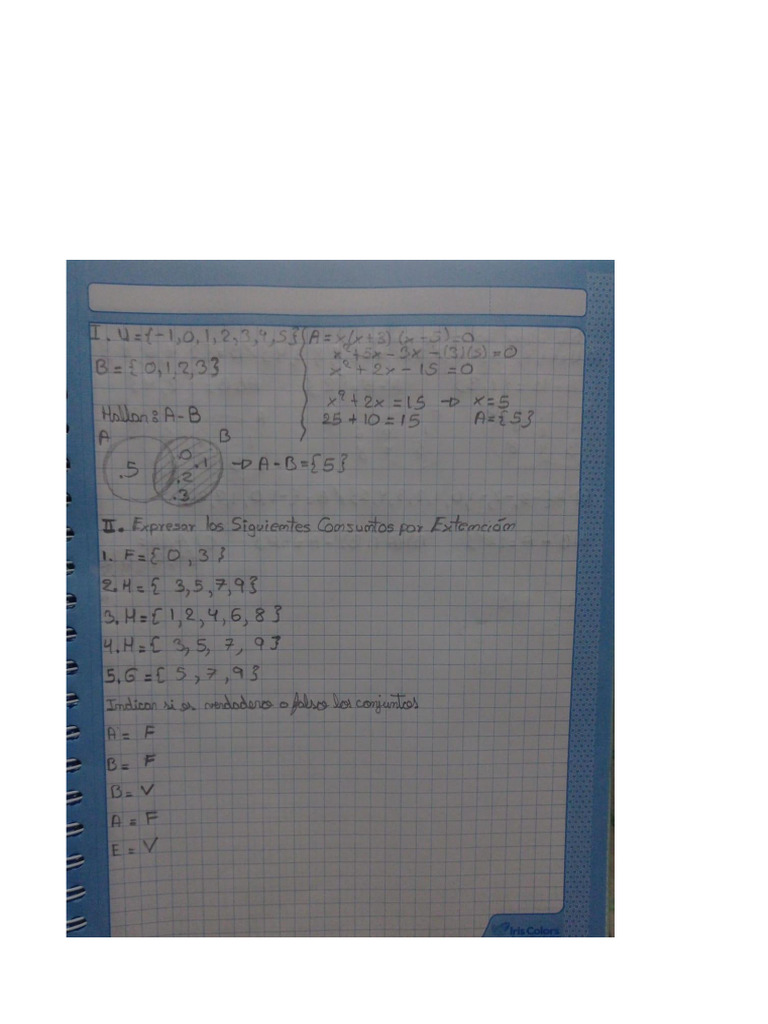 I. U={-1,0,1,2,3,4,5}
B={0,1,2,3}
Hallar: A-B
A B
.5 .0 .1 .2 .3 → A-B={5}
A= x(x+3) (x-5)=0
x²+5x-3x-(3)(5)=0
x²+2x-15=0
x²+2x=15 → x=5
25+10=15 A={5}
II. Expresar los Siguientes Consuntos por Extención
1. F={0,3}
2. H={3,5,7,9}
3. H={1,2,4,6,8}
4. H={3,5,7,9}
5. G={5,7,9}
Indicar si es verdadero o falso los conjuntos
A= F
B= F
B= V
A= F
E= V
Iris Colors